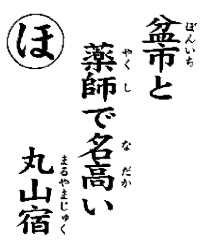 ほ
盆市と
ぼんいち
薬師で名高い
やくし なだか
丸山宿
まるやまじゅく